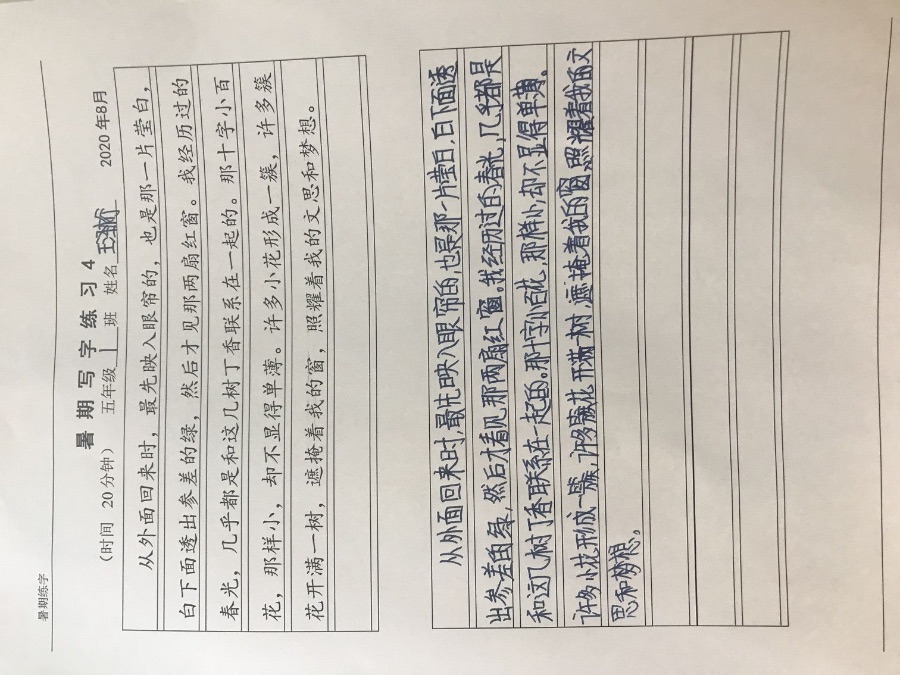 暑期练字
暑 期 写 字 练 习 4
（时间 20分钟） 五年级 1 班 姓名 2020年8月
从外面回来时，最先映入眼帘的，也是那一片莹白，
白下面透出参差的绿，然后才见那两扇红窗。我经历过的
春光，几乎都是和这几树丁香联系在一起的。那十字小百
花，那样小，却不显得单薄。许多小花形成一簇，许多簇
花开满一树，遮掩着我的窗，照耀着我的文思和梦想。
从外面回来时,最先映入眼帘的,也是那一片莹白,白下面透
出参差的绿,然后才看见那两扇红窗。我经历过的春光,几乎都是
和这几树丁香联系在一起的。那十字小百花,那样小,却不显得单薄。
许多小花形成一簇,许多簇花开满一树,遮掩着我的窗,照耀着我的文
思和梦想。